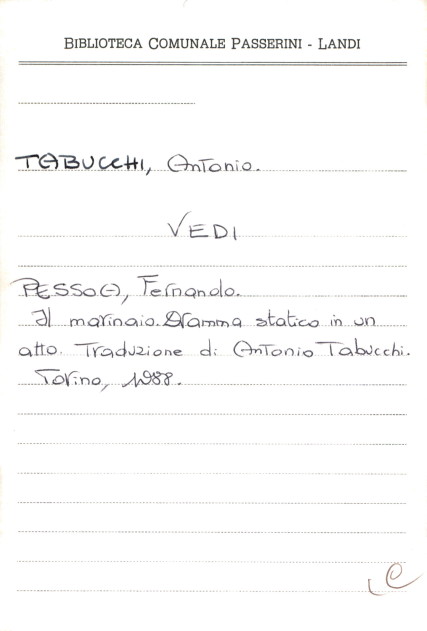 BIBLIOTECA COMUNALE PASSERINI - LANDI
TABUCCHI, Antonio.
VEDI
PESSOA, Fernando.
Il marinaio. Dramma statico in un
atto. Traduzione di Antonio Tabucchi.
Torino, 1988.